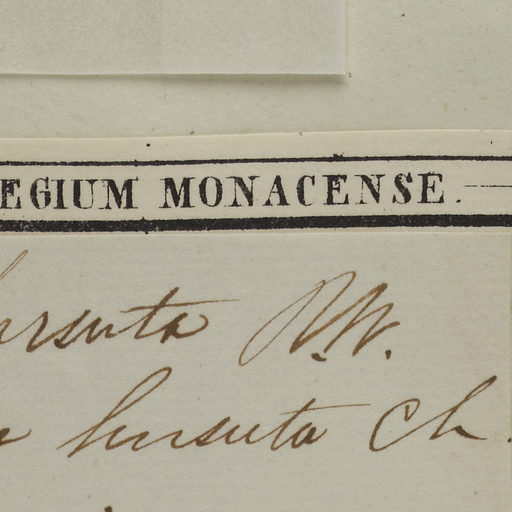 EGIUM MONACENSE.
hirsuta N.W.
hirsuta Ch.